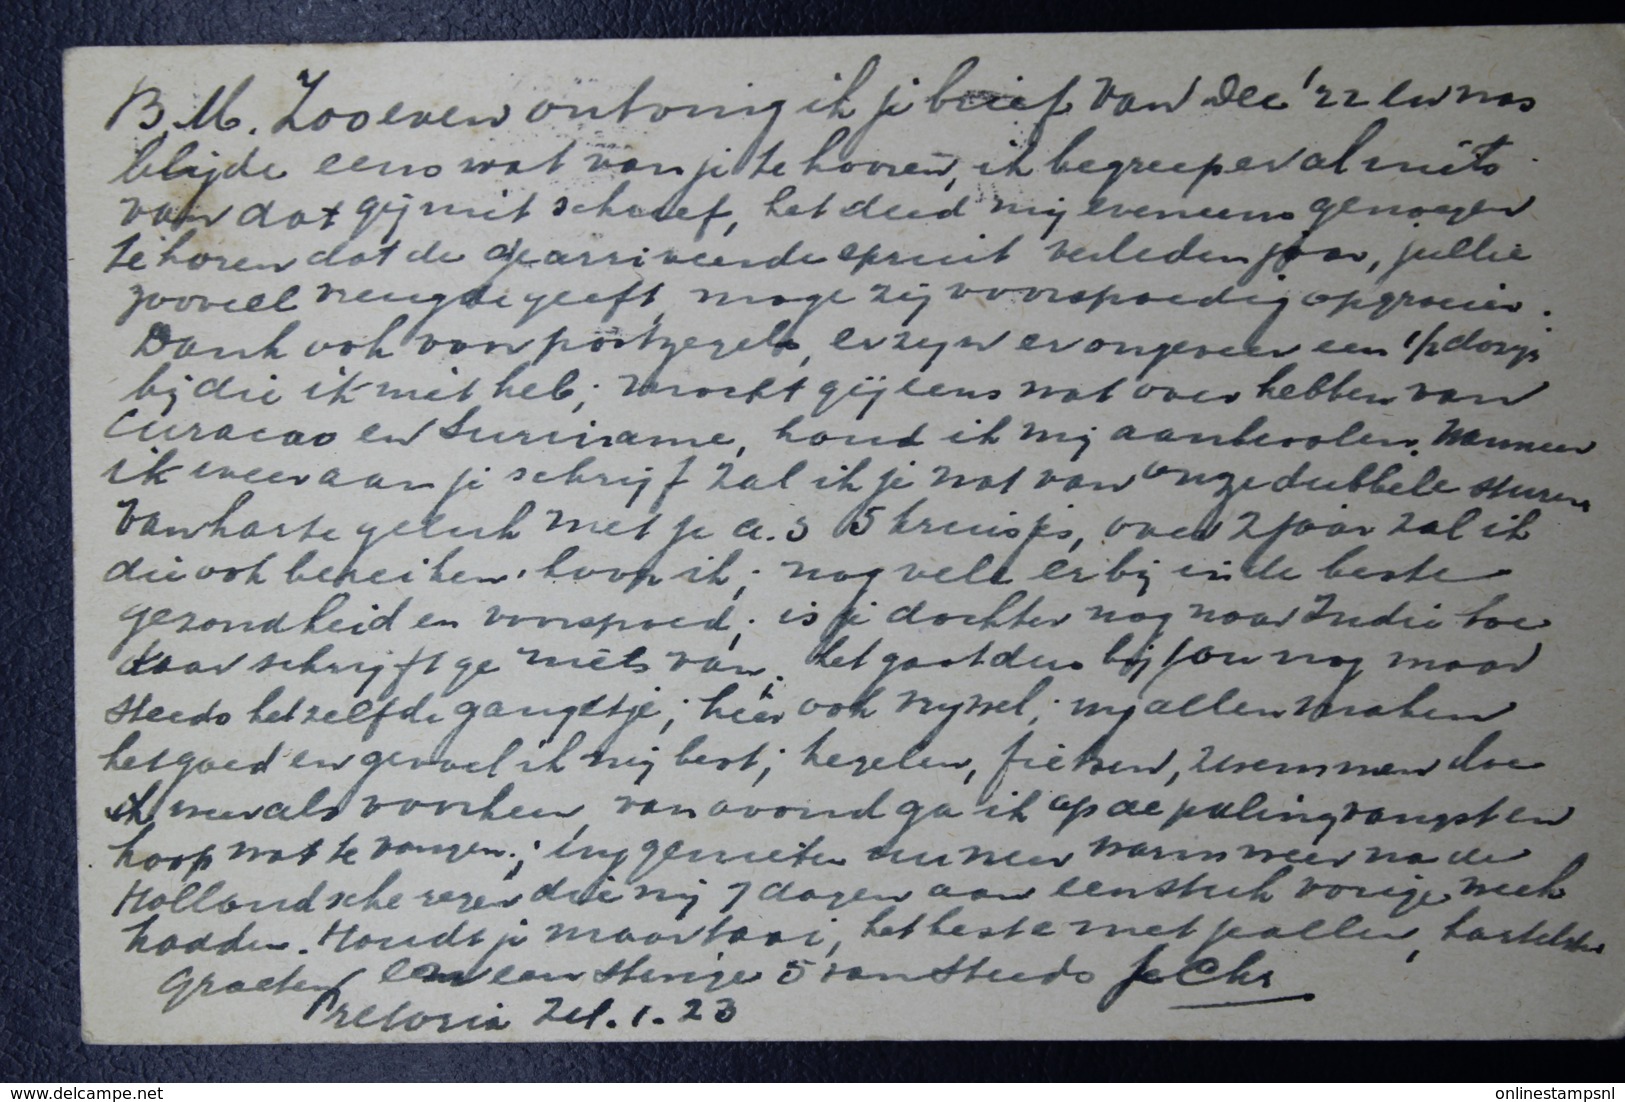 B.M. Zooeven ontving ik je brief van Dec '22 en was
blijde eens wat van je te hooren, ik begreep er al niets
van dat gij niet schreef, het deed mij eveneens genoegen
te horen dat de gearriveerde spruit verleden jaar, jullie
zooveel vreugde geeft, moge zij voorspoedig opgroeien.
Dank ook voor postzegels, er zijn er ongeveer een 1/2 dozijn
bij die ik niet heb; mocht gij eens wat over hebben van
Curacao en Suriname, houd ik mij aanbevolen. Wanneer
ik weer aan je schrijf zal ik je wat van onze dubbele sturen
Van harte geluk met je a.s 5 kruisjes, over 2 jaar zal ik
die ook bereiken hoop ik; nog vele erbij in de beste
gezondheid en voorspoed; is je dochter nog naar Indie toe
daar schrijft ge niets van. het gaat dus bij jou nog maar
steeds hetzelfde gangetje; hier ook nywel; wij allen maken
het goed en gevoel ik mij best; kegelen, fietsen, zwemmen doe
ik weer als voorheen, van avond ga ik op de palingvangst en
hoop wat te vangen; wij genieten nu weer warm weer na de
Hollandsche regen die wij 7 dagen aan een stuk vorige week
hadden. Houdt je maar taai, het beste met je allen, hartelijke
Groeten en een stevige 5 van steeds je Chr
Pretoria 24.1.23
onlinestampsnl